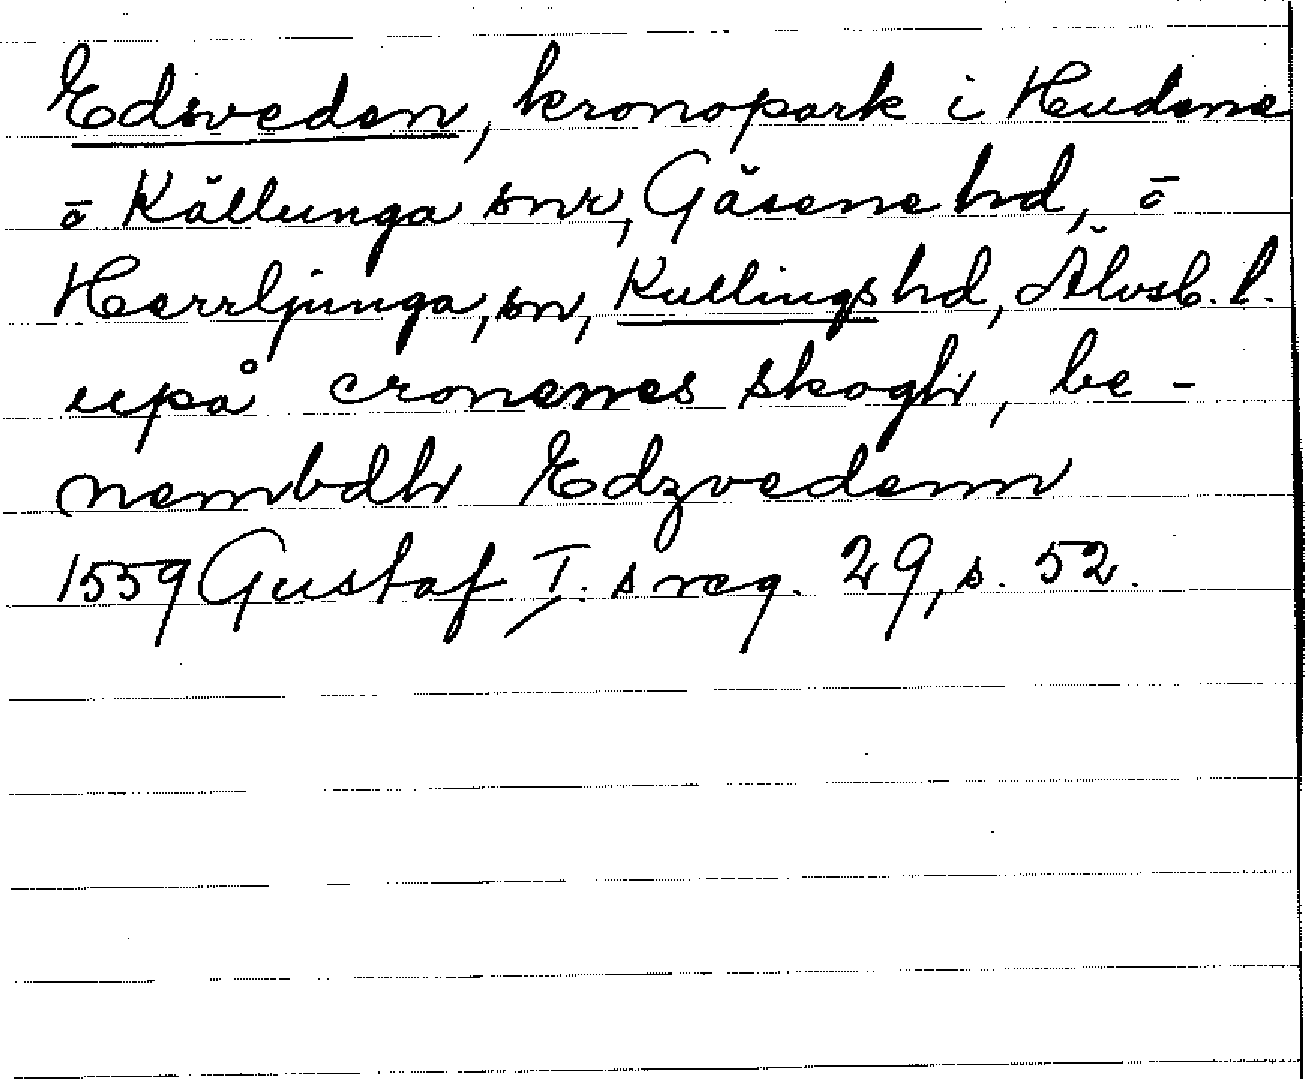 Edsveden, kronopark i Hudene
o Källunga snr, Gäsene hd, o
Herrljunga, sn, Kullings hd, Älvsb. l.
upå cronenes skogh, be-
nembdh Edzvedenn
1559 Gustaf I. s reg. 29, s. 52.